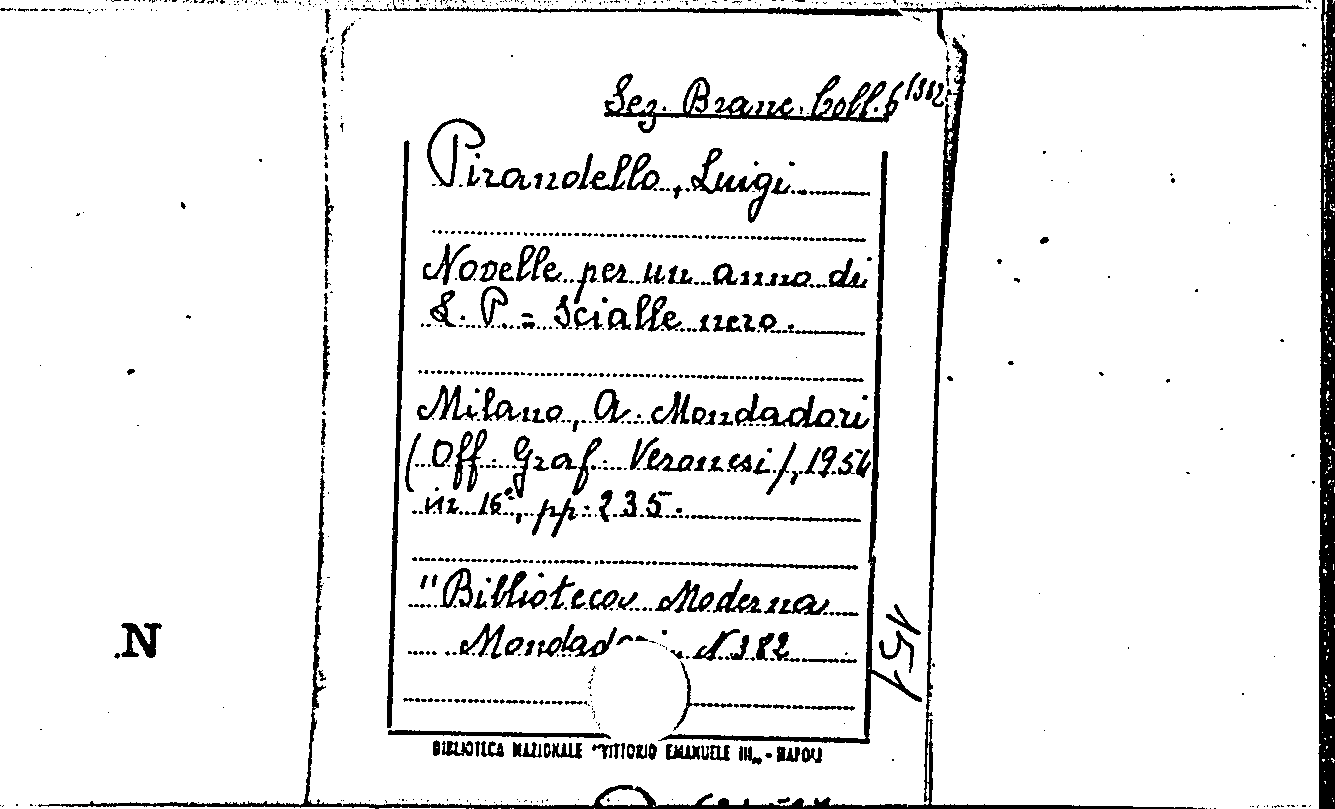 Sez. Branc. Coll. 6/382
Pirandello, Luigi
Novelle per un anno di
L. P. = Scialle nero.
Milano, A. Mondadori
(Off. Graf. Veronesi), 1954
in 16°, pp. 235.
"Biblioteca Moderna
Mondadori N 382
151
N
BIBLIOTECA NAZIONALE "VITTORIO EMANUELE III„ - NAPOLI